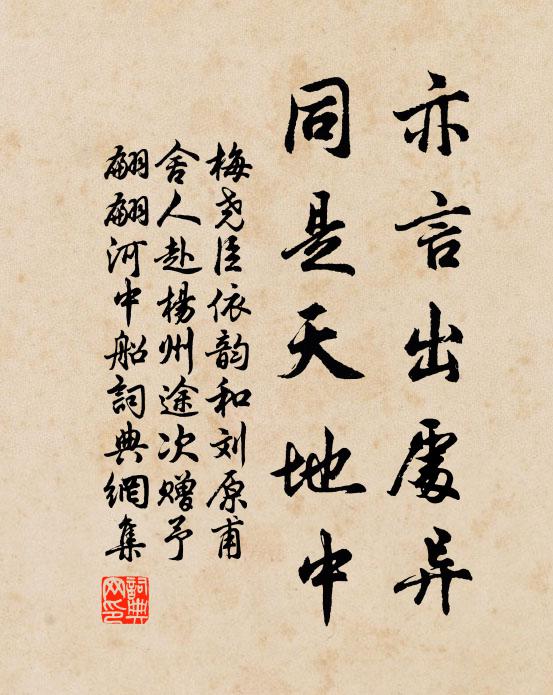 亦言出處异
同是天地中
梅尧臣依韵和刘原甫
舍人赴楊州途次赠予
翩翩河中船詞典網集
詞典網印